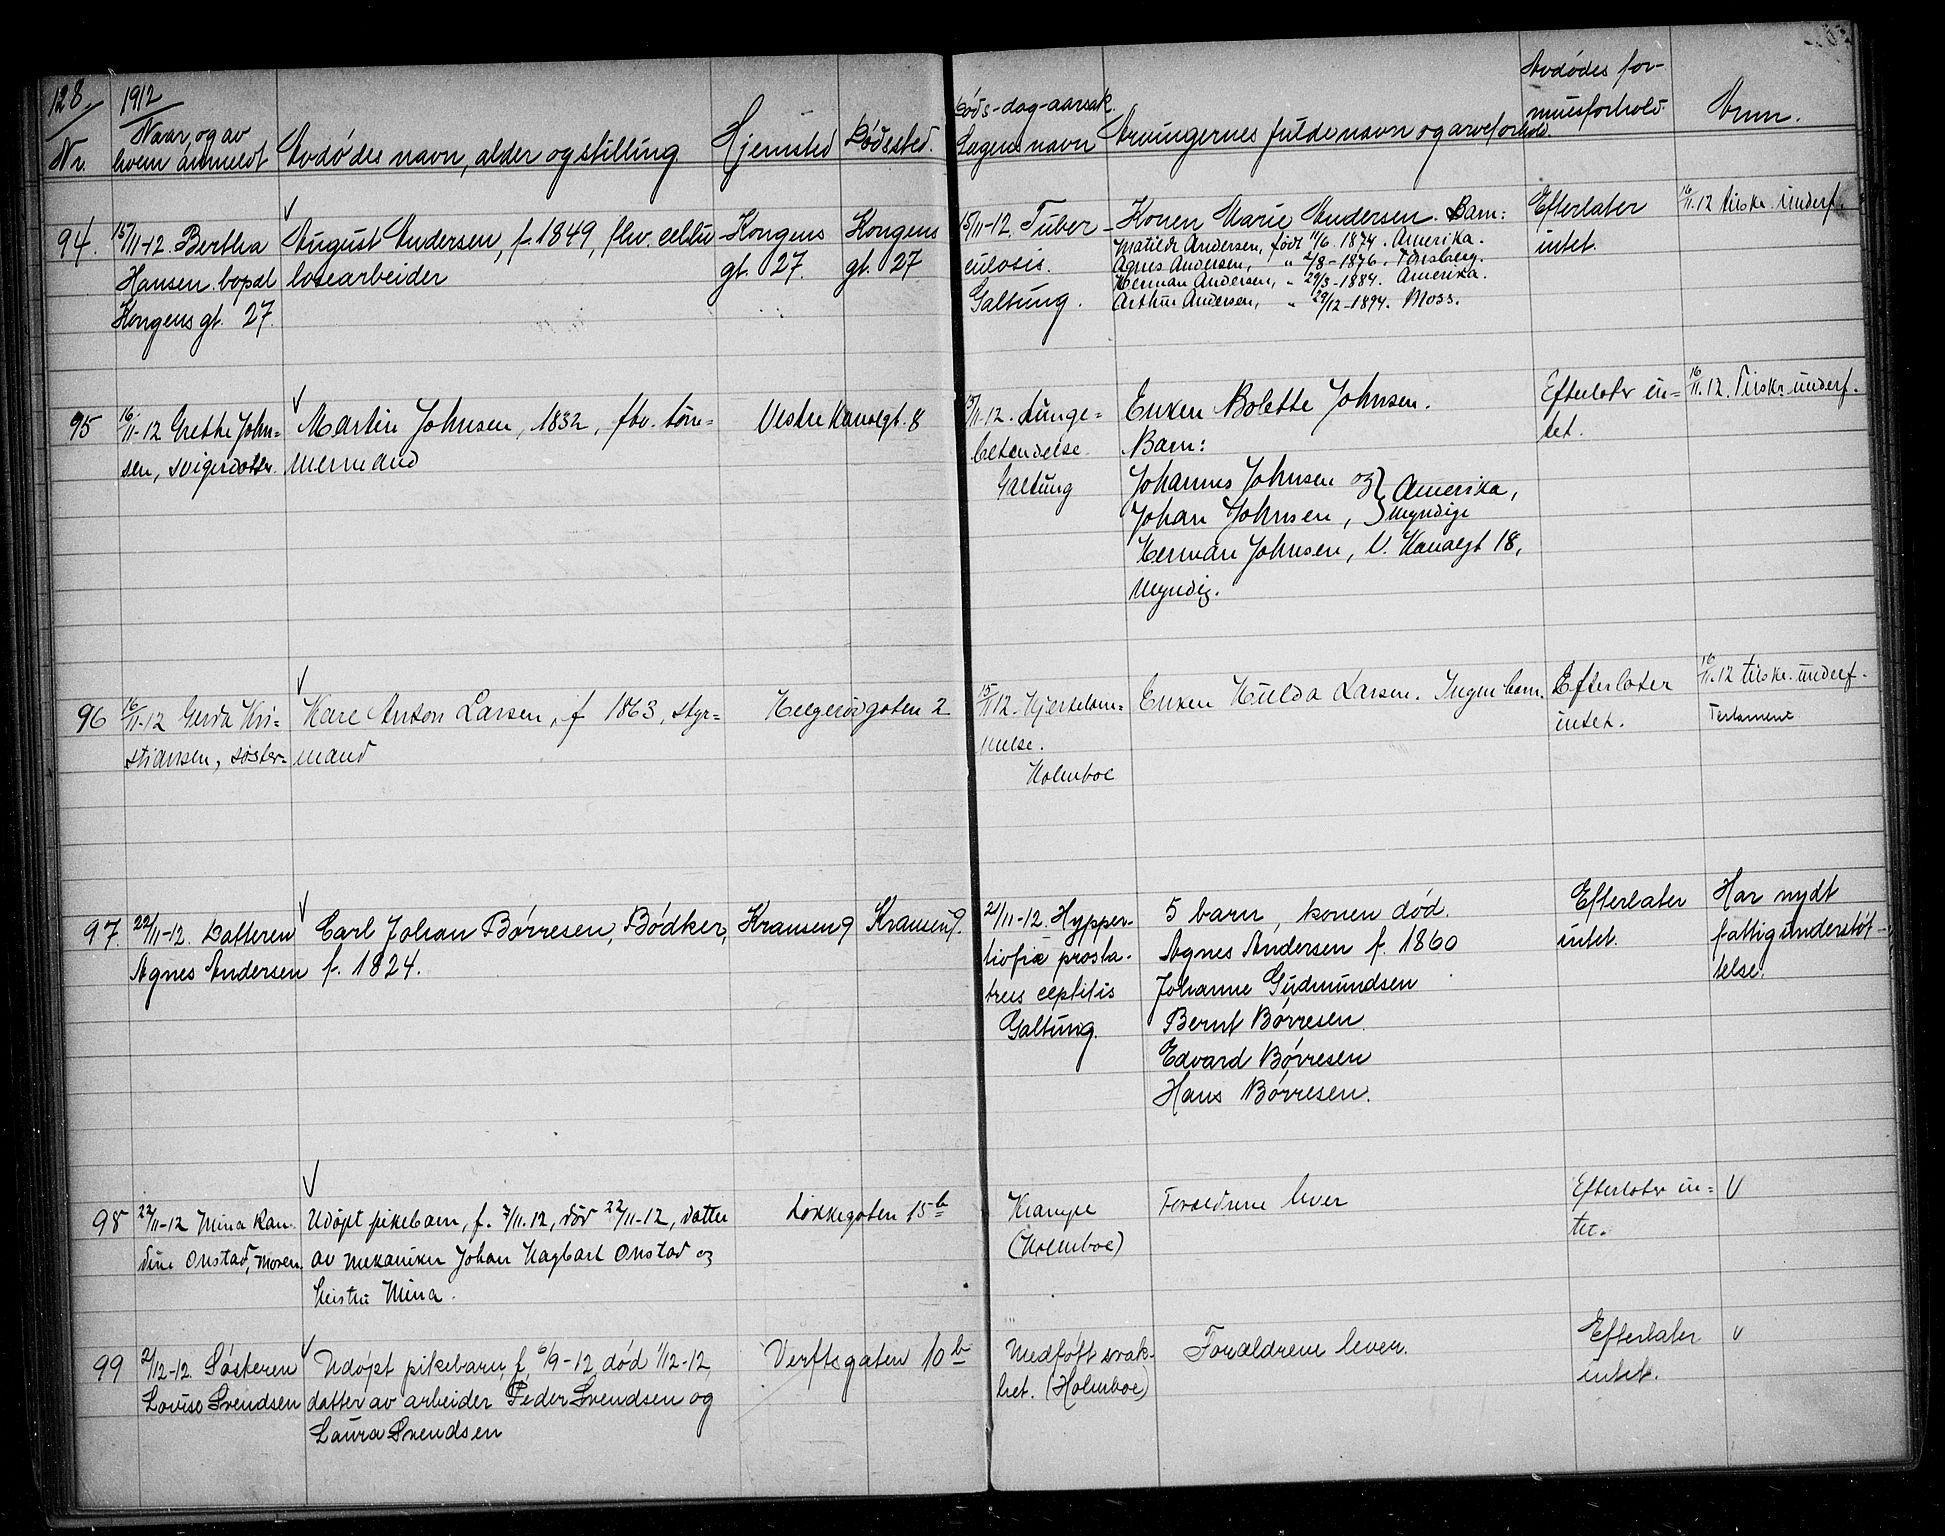 128. 1912
Nr. Naar og av hvem anmeldt Avdødes navn, alder og stilling Hjemsted Dødssted. Døds-dag-aarsak. Lægens navn Arvingernes fulde navn og arveforhold Avdødes formuesforhold. Anm.
94. 15/11-12. Bertha August Andersen, f. 1849, fhv. cellu- Kongens Kongens 15/11-12. Tuber- Konen Marie Andersen. Barn: Efterlater 16/11.12 tilskr. underf.
Hansen bopæl losearbeider gt. 27. gt. 27 culosis. Matilde Andersen, født 11/6. 1874. Amerika. intet.
Agnes Andersen, " 2/8-1876. Tønsberg.
Herman Andersen, " 29/3-1884. Amerika.
Kongens gt. 27. Galtung. Arthur Andersen, " 29/12-1894. Moss.
95 16/11-12 Grethe John- Martin Johnsen, 1832, fhv. tøm- Vestre Kanalgt. 8 15/11-12. Lunge- Enken Bolette Johnsen. Efterlater in- 16/11.12. Tilskr. underf.
sen, svigerdatter mermand betendelse Barn: tet.
Galtung Johannes Johnsen og } Amerika,
Johan Johnsen, } Myndige
Herman Johnsen, V. Kanalgt 18,
Myndig.
96 16/11-12 Gerda Kri- Karl Anton Larsen, f 1863, styr- Helgerødgaten 2 15/11 12. Hjertelam- Enken Hulda Larsen. Ingen barn. Efterlater 16/11.12 tilskr. underf.
stiansen, søster- mand melse. intet. Testament
Holmboe
97. 22/11-12. Datteren Carl Johan Børresen, Bødker, Kransen 9 Kransen 9. 21/11-12. Hypper- 5 barn, konen død. Efterlater Har nydt
Agnes Andersen f. 1824. trofia prosta- Agnes Andersen f. 1860 intet. fattigunderstøt-
Johanne Gudmundsen telse.
Galtung. Bernt Børresen
Edvard Børresen
Hans Børresen.
98 22/11-12 Mina Kan- Udøpt pikebarn, f. 7/11.12, død 22/11-12, datter Løkkegaten 15b Krampe Forældrene lever Efterlater in- V
dine Onstad, moren. av mekaniker Johan Hagbart Onstad og (Holmboe) tet.
hustru Mina.
99 2/12-12. Søsteren Udøpt pikebarn, f. 6/9-12 død 1/12-12, Verftsgaten 10b Medfødt svak- Forældrene lever. Efterlater V
Lovise Svendsen datter av arbeider Peder Svendsen og het. (Holmboe) intet.
Laura Svendsen